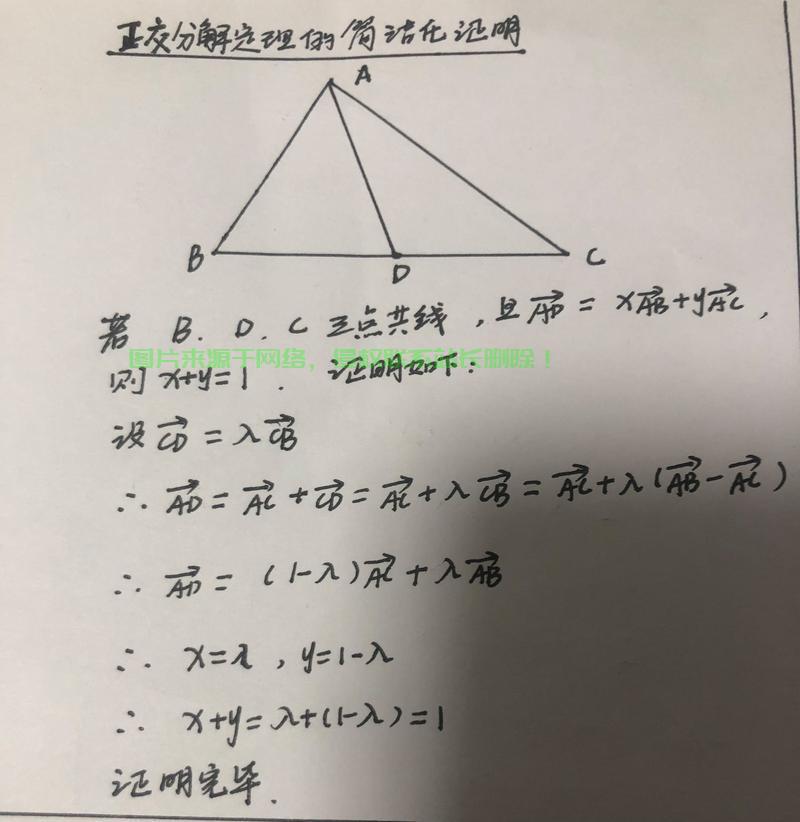 正交分解定理的简洁化证明
A
B
D
C
若 B. D. C 三点共线,且AD→ = xAB→+yAC→,
图片来源于网络,侵权联系站长删除!
则 x+y=1. 证明如下:
设CD→ = λCB→
∴ AD→ = AC→ + CD→ = AC→ + λCB→ = AC→ + λ(AB→ - AC→)
∴ AD→ = (1-λ)AC→ + λAB→
∴ x=λ, y=1-λ
∴ x+y=λ+(1-λ)=1
证明完毕.